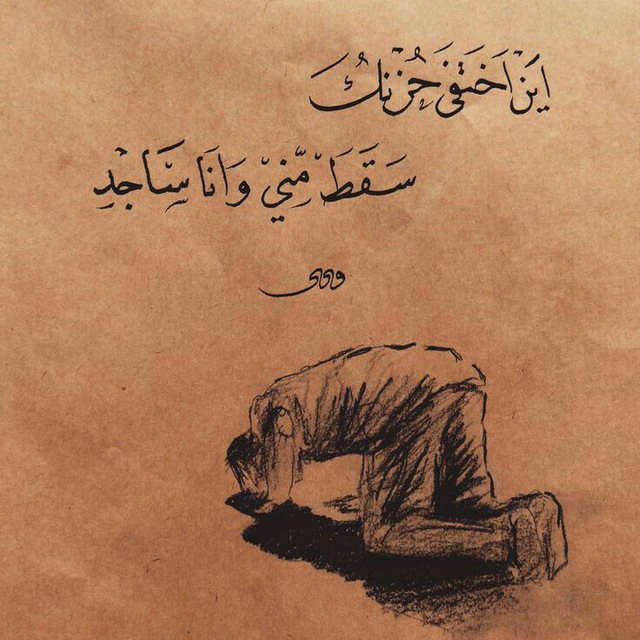 اَيَنْ اَخَتفَىَ حُزنكَُ
سَقَطَ مِّنيْ وَانَا سَِّاجْدِ